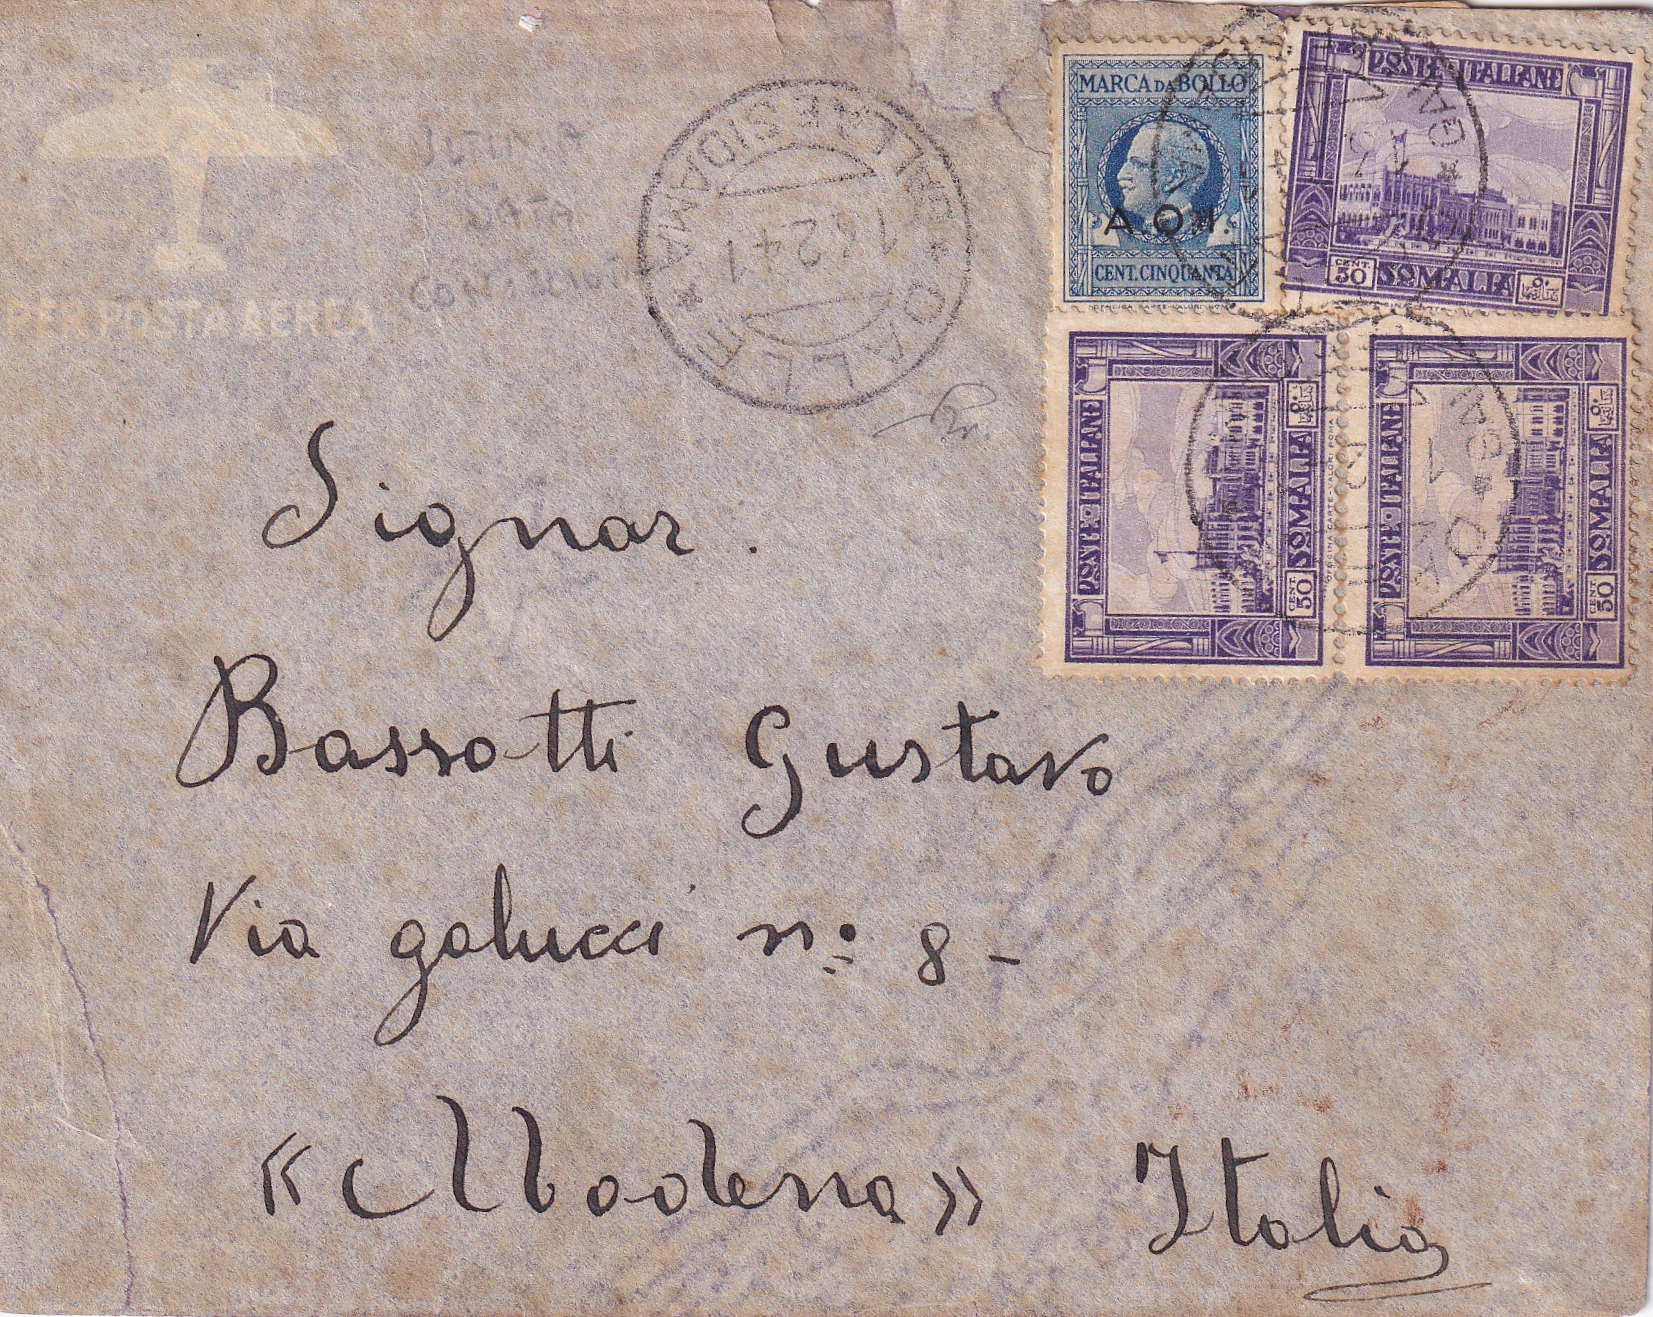 PER POSTA AEREA
ULTIMA
DATA
MARCA DA BOLLO
A.O.I.
CENT. CINQUANTA
POSTE ITALIANE
CENT. 50 SOMALIA
POSTE ITALIANE
CENT. 50 SOMALIA
POSTE ITALIANE
CENT. 50 SOMALIA
DALLE
GALLA E SIDAMA
Signor.
Bassotti Gustavo
Via galucci nº 8 -
«Modena» Italia